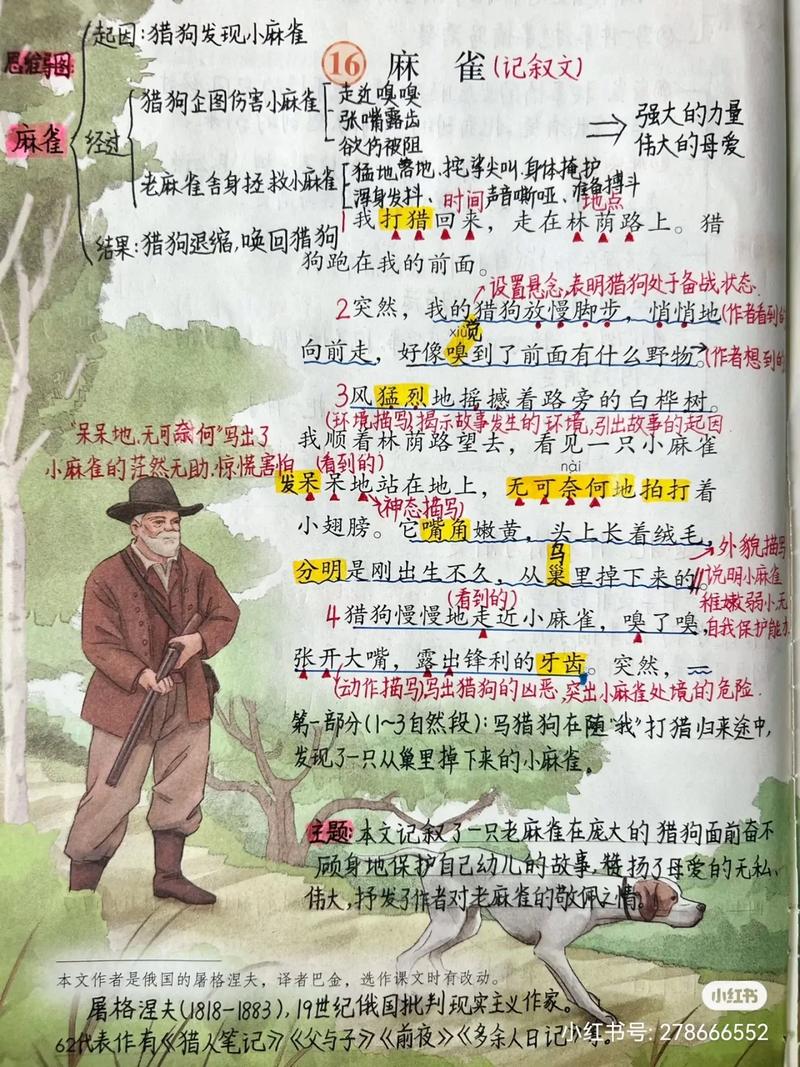 起因:猎狗发现小麻雀
思维导图:
16 麻 雀(记叙文)
猎狗企图伤害小麻雀
走近嗅嗅
张嘴露出
欲伤被阻
麻雀
经过
强大的力量
伟大的母爱
老麻雀舍身拯救小麻雀
猛地落地、挓挲尖叫、身体掩护
浑身发抖、声音嘶哑、准备搏斗
时间
地点
结果:猎狗退缩,唤回猎狗
1我打猎回来，走在林荫路上。猎
狗跑在我的前面。
设置悬念,表明猎狗处于备战状态.
2突然，我的猎狗放慢脚步，悄悄地(作者看到的
xiù
觉
向前走，好像嗅到了前面有什么野物。(作者想到的
3风猛烈地摇撼着路旁的白桦树。
(环境描写)揭示故事发生的环境,引出故事的起因
"呆呆地、无可奈何"写出了
小麻雀的茫然无助、惊慌害怕
我顺着林荫路望去，看见一只小麻雀
(看到的)
nài
发呆呆地站在地上，无可奈何地拍打着
(神态描写)
小翅膀。它嘴角嫩黄，头上长着绒毛，
外貌描写
鸟
分明是刚出生不久，从巢里掉下来的。
说明小麻雀
稚嫩弱小,无
自我保护能力
(看到的)
4猎狗慢慢地走近小麻雀，嗅了嗅，
张开大嘴，露出锋利的牙齿。突然，
(动作描写)写出猎狗的凶恶,突出小麻雀处境的危险.
第一部分(1~3自然段):写猎狗在随"我"打猎归来途中,
发现了一只从巢里掉下来的小麻雀。
主题:本文记叙了一只老麻雀在庞大的猎狗面前奋不
顾身地保护自己幼儿的故事,赞扬了母爱的无私、
伟大,抒发了作者对老麻雀的敬佩之情。
本文作者是俄国的屠格涅夫，译者巴金，选作课文时有改动。
屠格涅夫(1818-1883),19世纪俄国批判现实主义作家。
62代表作有《猎人笔记》《父与子》《前夜》《多余人日记》等。
小红书
小红书号: 278666552